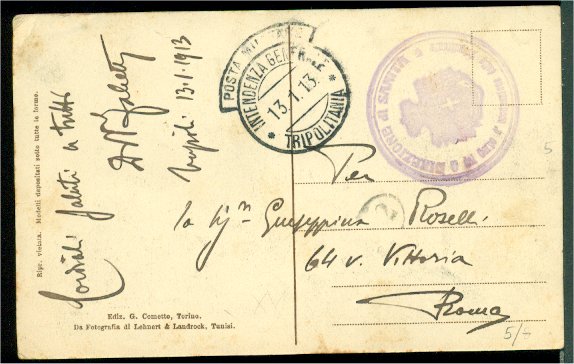 Ripr. vietata. Modelli depositati sotto tutte le forme.
Cordiali saluti a tutti
13.1.1913
POSTA MILITARE
INTENDENZA GENERALE
13.1.13.
* TRIPOLITANIA *
DIREZIONE di SANITÀ
Per
la Sig.na Giuseppina Roselli
64 v. Vittoria
Roma
2
5
5/-
Ediz. G. Cometto, Torino.
Da Fotografia di Lehnert & Landrock, Tunisi.